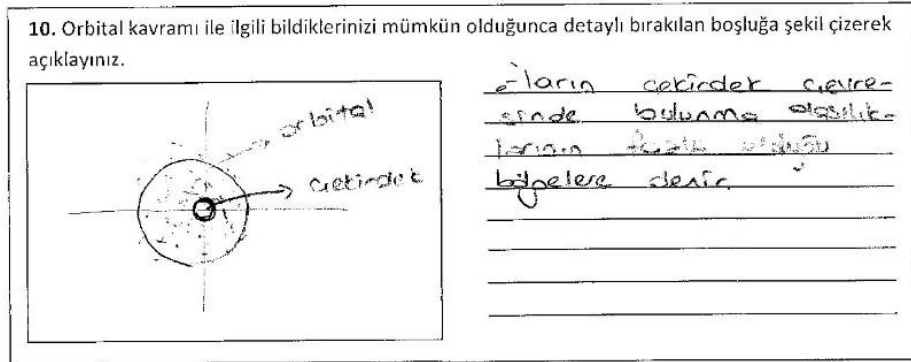 10. Orbital kavramı ile ilgili bildiklerinizi mümkün olduğunca detaylı bırakılan boşluğa şekil çizerek
açıklayınız.
orbital
çekirdek
e⁻ların çekirdek çevre-
sinde bulunma olasılık-
larının fazla olduğu
bölgelere denir